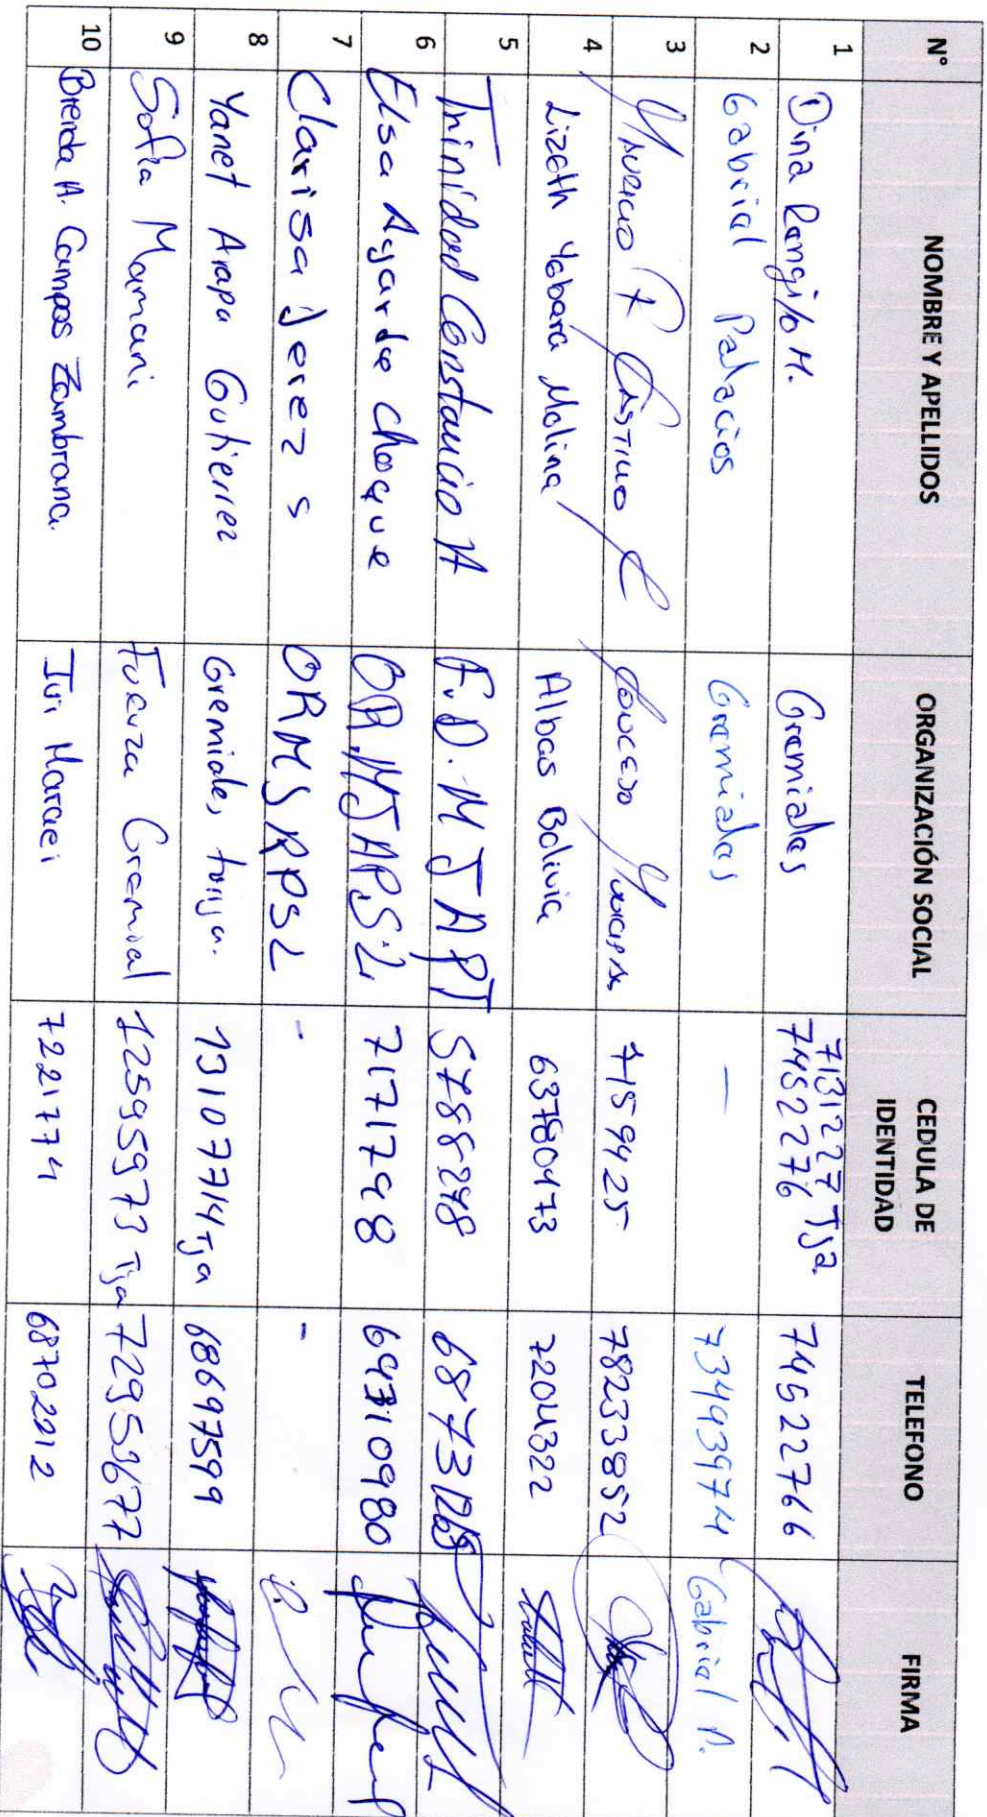 N° NOMBRE Y APELLIDOS ORGANIZACIÓN SOCIAL CEDULA DE IDENTIDAD TELEFONO FIRMA
1 Dina Rengifo M. Gremiales 7131227 Tja. 74522766
74522276
2 Gabrial Palacios Gremiales — 734939774 Gabrial P.
3 Castillo 7159425 782339852
4 Lizeth Yabara Molina Albas Bolivia 63780473 72041322
5 Trinidad Constancio A F.D.M J A P T 5788248
6 Elsa Ayarde choque 7171798 69310980
7 Clarisa Jerez S - -
8 Yanet Arapa Gutierrez Gremiales tarija. 13107714 Tja 68697599
9 Sofia Mamani Fuerza Gremial 12595973 Tja 72953677
10 Brenda A. Campos Zambrana. 7221774 68702212